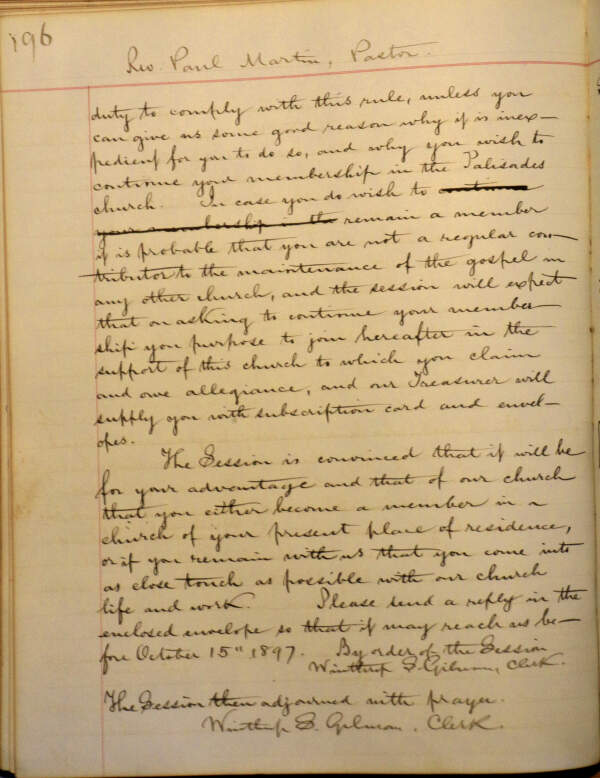 196
Rev. Paul Martin, Pastor.
duty to comply with this rule, unless you
can give us some good reason why it is inex-
pedient for you to do so, and why you wish to
continue your membership in the Palisades
church. In case you do wish to continue
your membership in the remain a member
it is probable that you are not a regular con-
tributor to the maintenance of the gospel in
any other church, and the session will expect
that on asking to continue your member-
ship you purpose to join hereafter in the
support of this church to which you claim
and owe allegiance, and our Treasurer will
supply you with subscription card and envel-
opes.
The Session is convinced that it will be
for your advantage and that of our church
that you either become a member in a
church of your present place of residence,
or if you remain with us that you come into
as close touch as possible with our church
life and work. Please send a reply in the
enclosed envelope so that it may reach us be-
fore October 15th 1897. By order of the Session
Winthrop S. Gilman, Clerk.
The Session then adjourned with prayer.
Winthrop S. Gilman, Clerk.